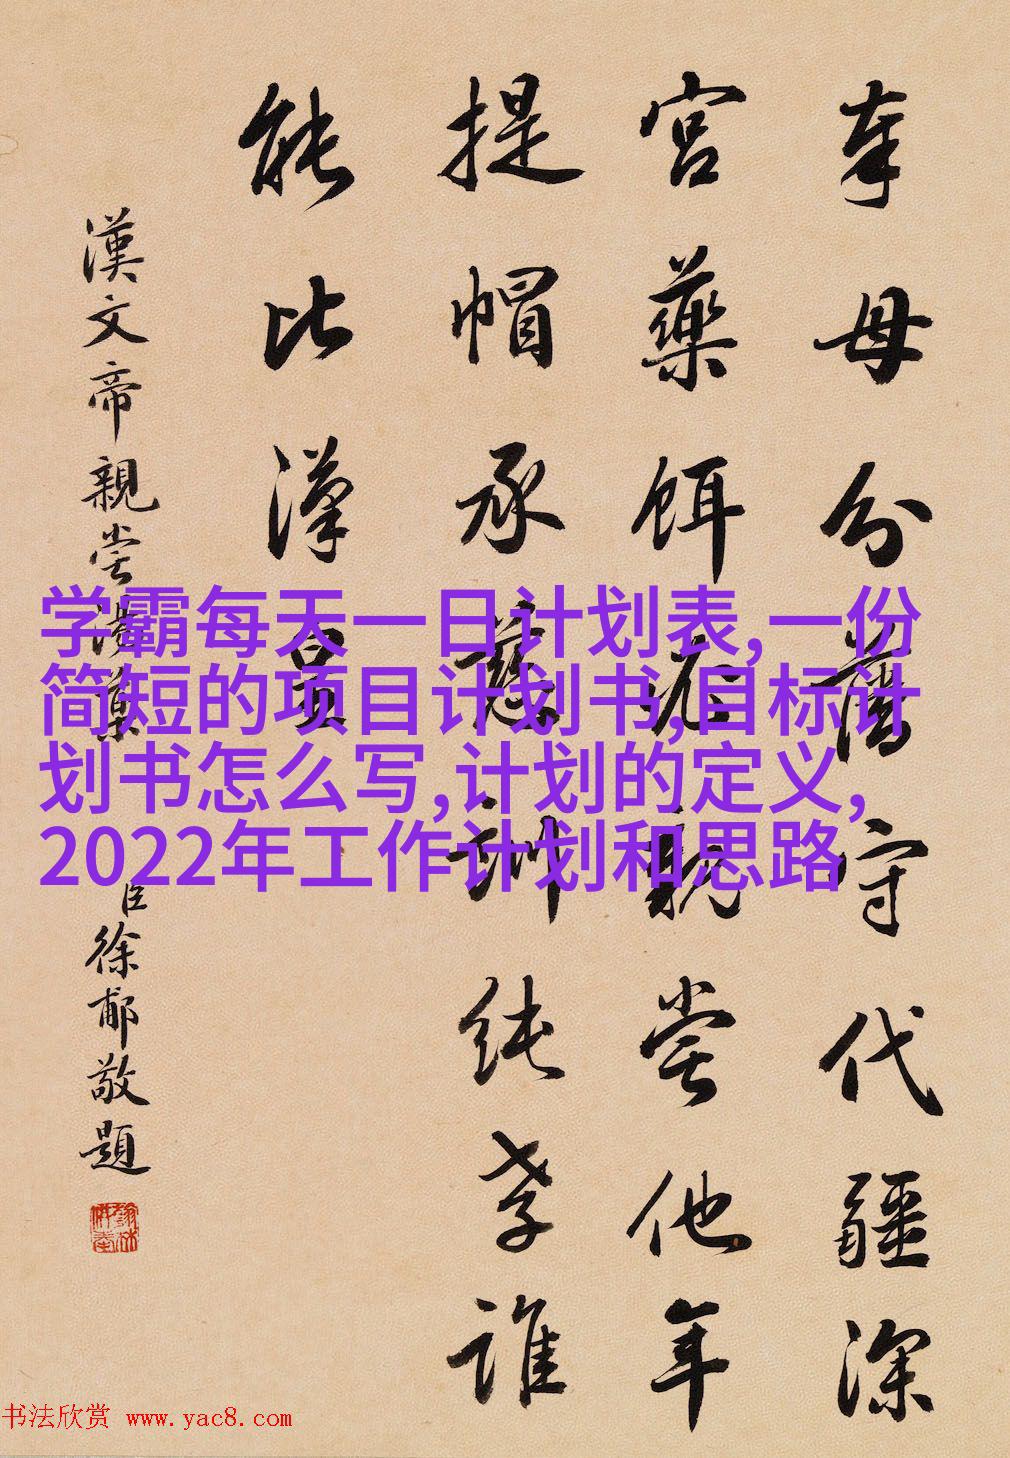 奉母分藩守代疆深
宮藥餌必親嘗他年
提帽承慈訓純孝誰
能比漢皇
漢文帝親嘗湯藥
臣徐郙敬題
学霸每天一日计划表,一份
简短的项目计划书,目标计
划书怎么写,计划的定义,
2022年工作计划和思路
书法欣赏 www.yac8.com